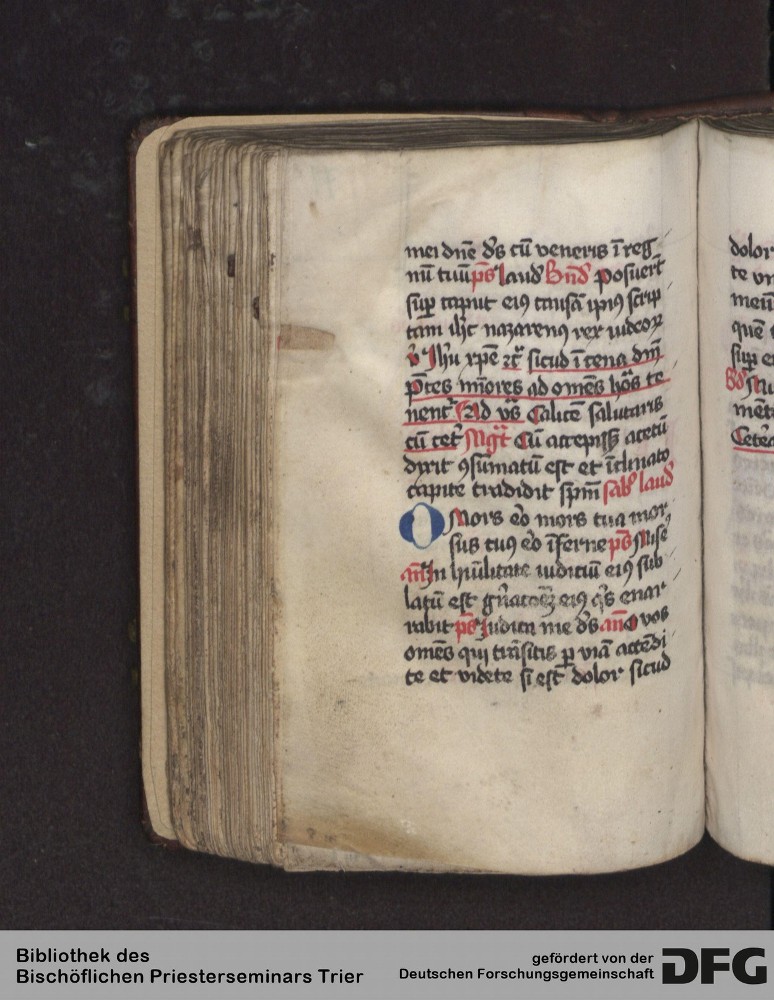 mei dn̄e ds̄ cū veneris ī reg
nū tuū ps̄ laud Bn̄d posuert̄
sup̄ caput eiꝰ causā ipiꝰ scrip
tam ih̄c nazarenꝰ rex iudeoꝝ
v̄ Ih̄u xp̄e ⁊c̄ sicud ī cena dn̄i
p̄tes mīores ad om̄es ho᷒s te
nent᷒ Ad vs̄ Calicē salutaris
cū cet᷒ Mgt̄ Cū accepiss᷒ acetū
dixit ꝯsūmatū est et īclinato
capite tradidit sp̄m sab̄ laud
O Mors ēo mors tua mor
sus tuꝰ ēo īferne ps̄ Mise
an̄ In hūilitate iudiciū eiꝰ sub
latū est gn̄acōeꝫ eiꝰ q̄s enar
rabit ps̄ Iudica me ds̄ an̄ O vos
om̄es qui trāsitis ꝑ viā attēdi
te et videte si est dolor sicud
dolor
te vn
meū
quē
sup̄ e
mētā
Ceterꝫ
Bibliothek des
Bischöflichen Priesterseminars Trier
gefördert von der
Deutschen Forschungsgemeinschaft
DFG